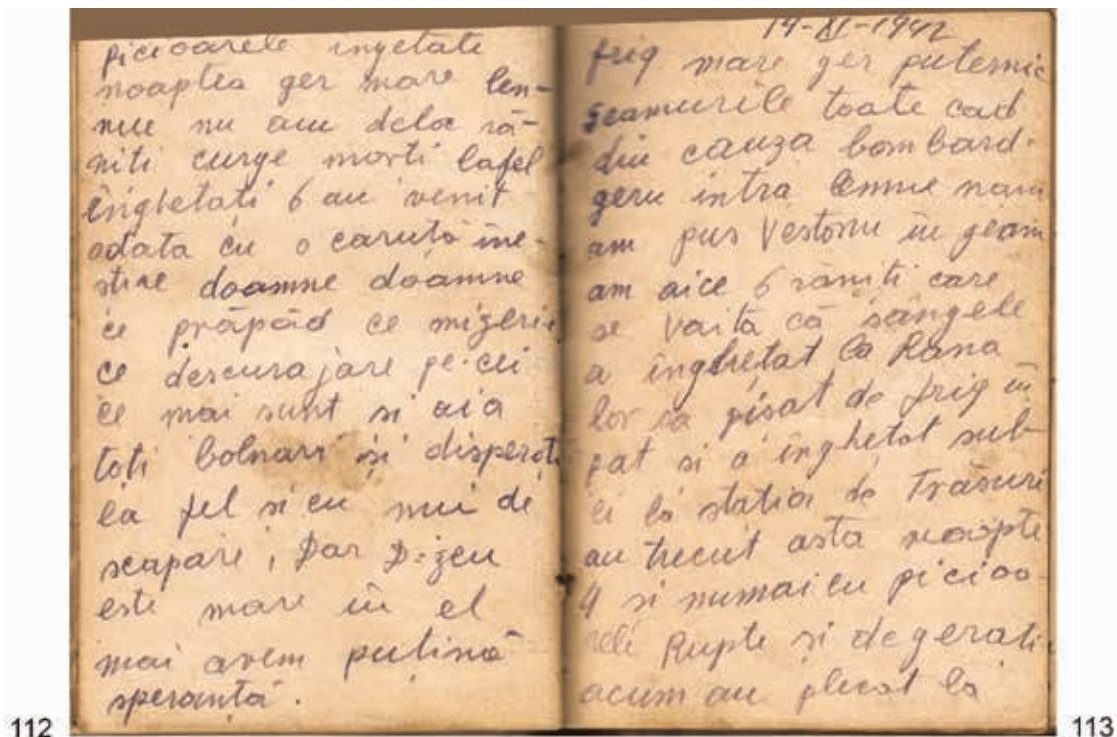 picioarele ingetate
noaptea ger mare lem-
nue nu am dela ră-
niti curge morti lafel
înghetati 6 au venit
odata cu o caruta ine-
doamne doamne
ce prăpăd ce mizeri
ce descurajare pe cei
ce mai sunt si aia
toti bolnavi și disperati
la fel si eu nui de
scapare, Dar D-zeu
este mare in el
mai avem putină
speranță.
112
14-XI-1942
frig mare ger puternic
geamurile toate cad
din cauza bombard.
geru intra lemne nam
am pus Vestonu in geam
am aice 6 răniti care
se vaită că sângele
a înghetat ca Rana
lor sa pisat de frig în
pat si a inghetat sub
ei la statia de Trăsuri
au trecut asta noapte
4 si numai cu picioa-
rele Rupte si degerati
acum au plecat la
113